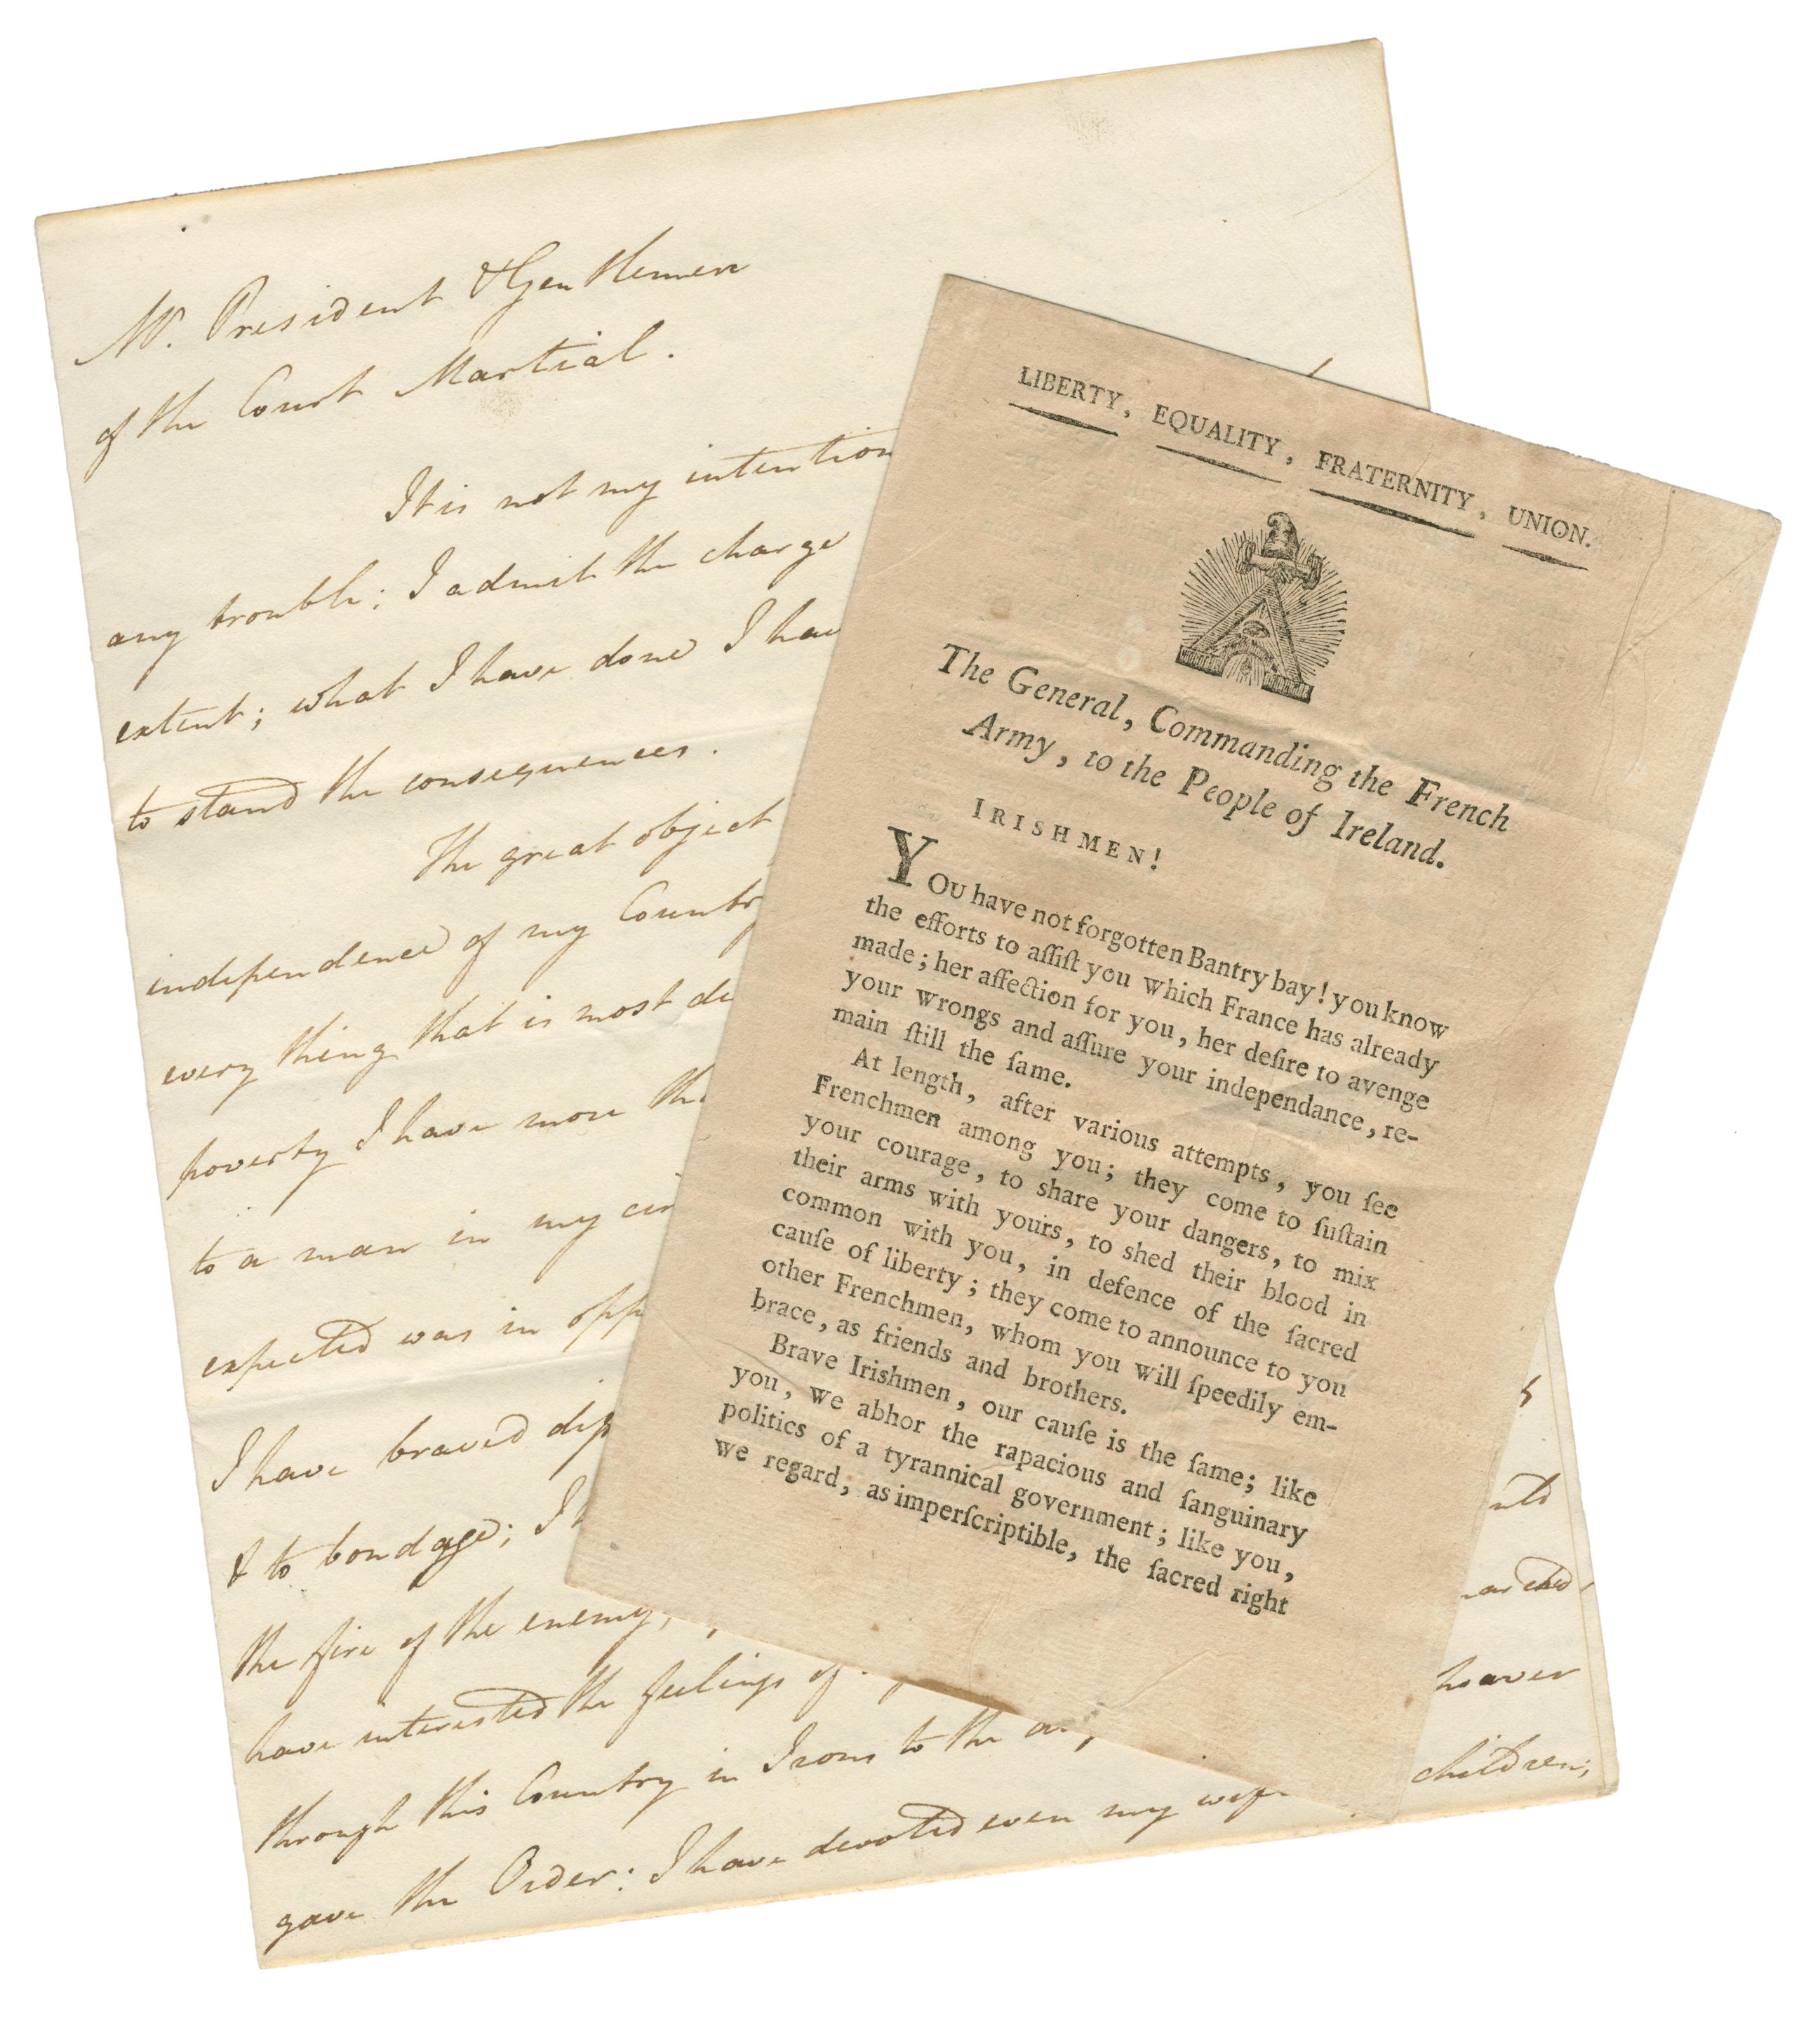 Mr. President & Gentlemen
of the Court Martial.
It is not my intention
any trouble; I admit the charge
extent; what I have done I have
to stand the consequences.
The great object
independence of my Country
every thing that is most de
poverty I have more tha
to a man in my cir
expected was in opp
I have braved dif
& to bondage; I h
the fire of the enemy,
have interested the feelings of
through this Country in Irons to the
gave the Order: I have devoted even my wife children;
LIBERTY, EQUALITY, FRATERNITY, UNION.
The General, Commanding the French
Army, to the People of Ireland.
IRISHMEN!
YOU have not forgotten Bantry bay! you know
the efforts to aſſiſt you which France has already
made; her affection for you, her deſire to avenge
your wrongs and aſſure your independance, re-
main ſtill the ſame.
At length, after various attempts, you ſee
Frenchmen among you; they come to ſuſtain
your courage, to share your dangers, to mix
their arms with yours, to shed their blood in
common with you, in defence of the ſacred
cauſe of liberty; they come to announce to you
other Frenchmen, whom you will ſpeedily em-
brace, as friends and brothers.
Brave Irishmen, our cauſe is the ſame; like
you, we abhor the rapacious and ſanguinary
politics of a tyrannical government; like you,
we regard, as imperſcriptible, the ſacred right